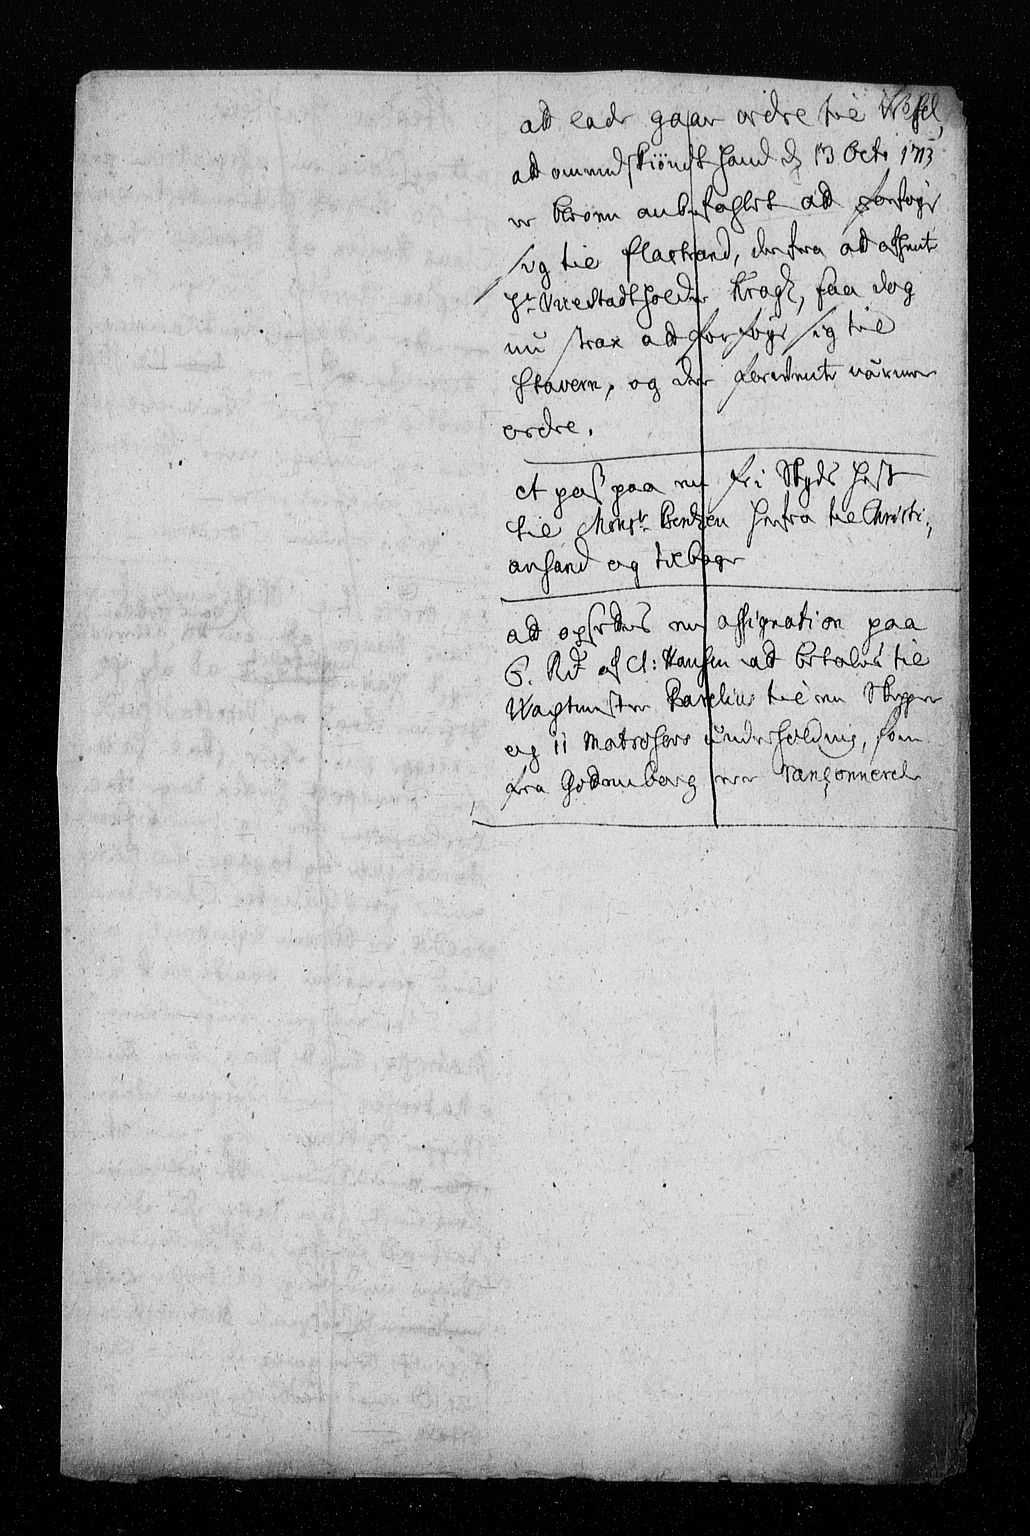 att lade gaar ordre til Wessel,
att anmendskiöndt hand d 13 Octr 1713
er bleven anbefahlet att forføye
sig til Fladstrand, derfra att affhente
Hr Vicestadtholder Kragh, saa dog
nu strax att forføye sig til
Stavern, og der forvendte närmere
ordre.
et pass paa en fri Skyds Hest
til Monsr Bentzen herfra til Christi,
ansand og tilbage
att opsettes en assignation paa
6. Rd af Cl: Hansen att betales til
Wagtmester Barelius til en Skipper
og 11 Matrosers Underholding, som
fra Gottenborg ere ranzonnerede